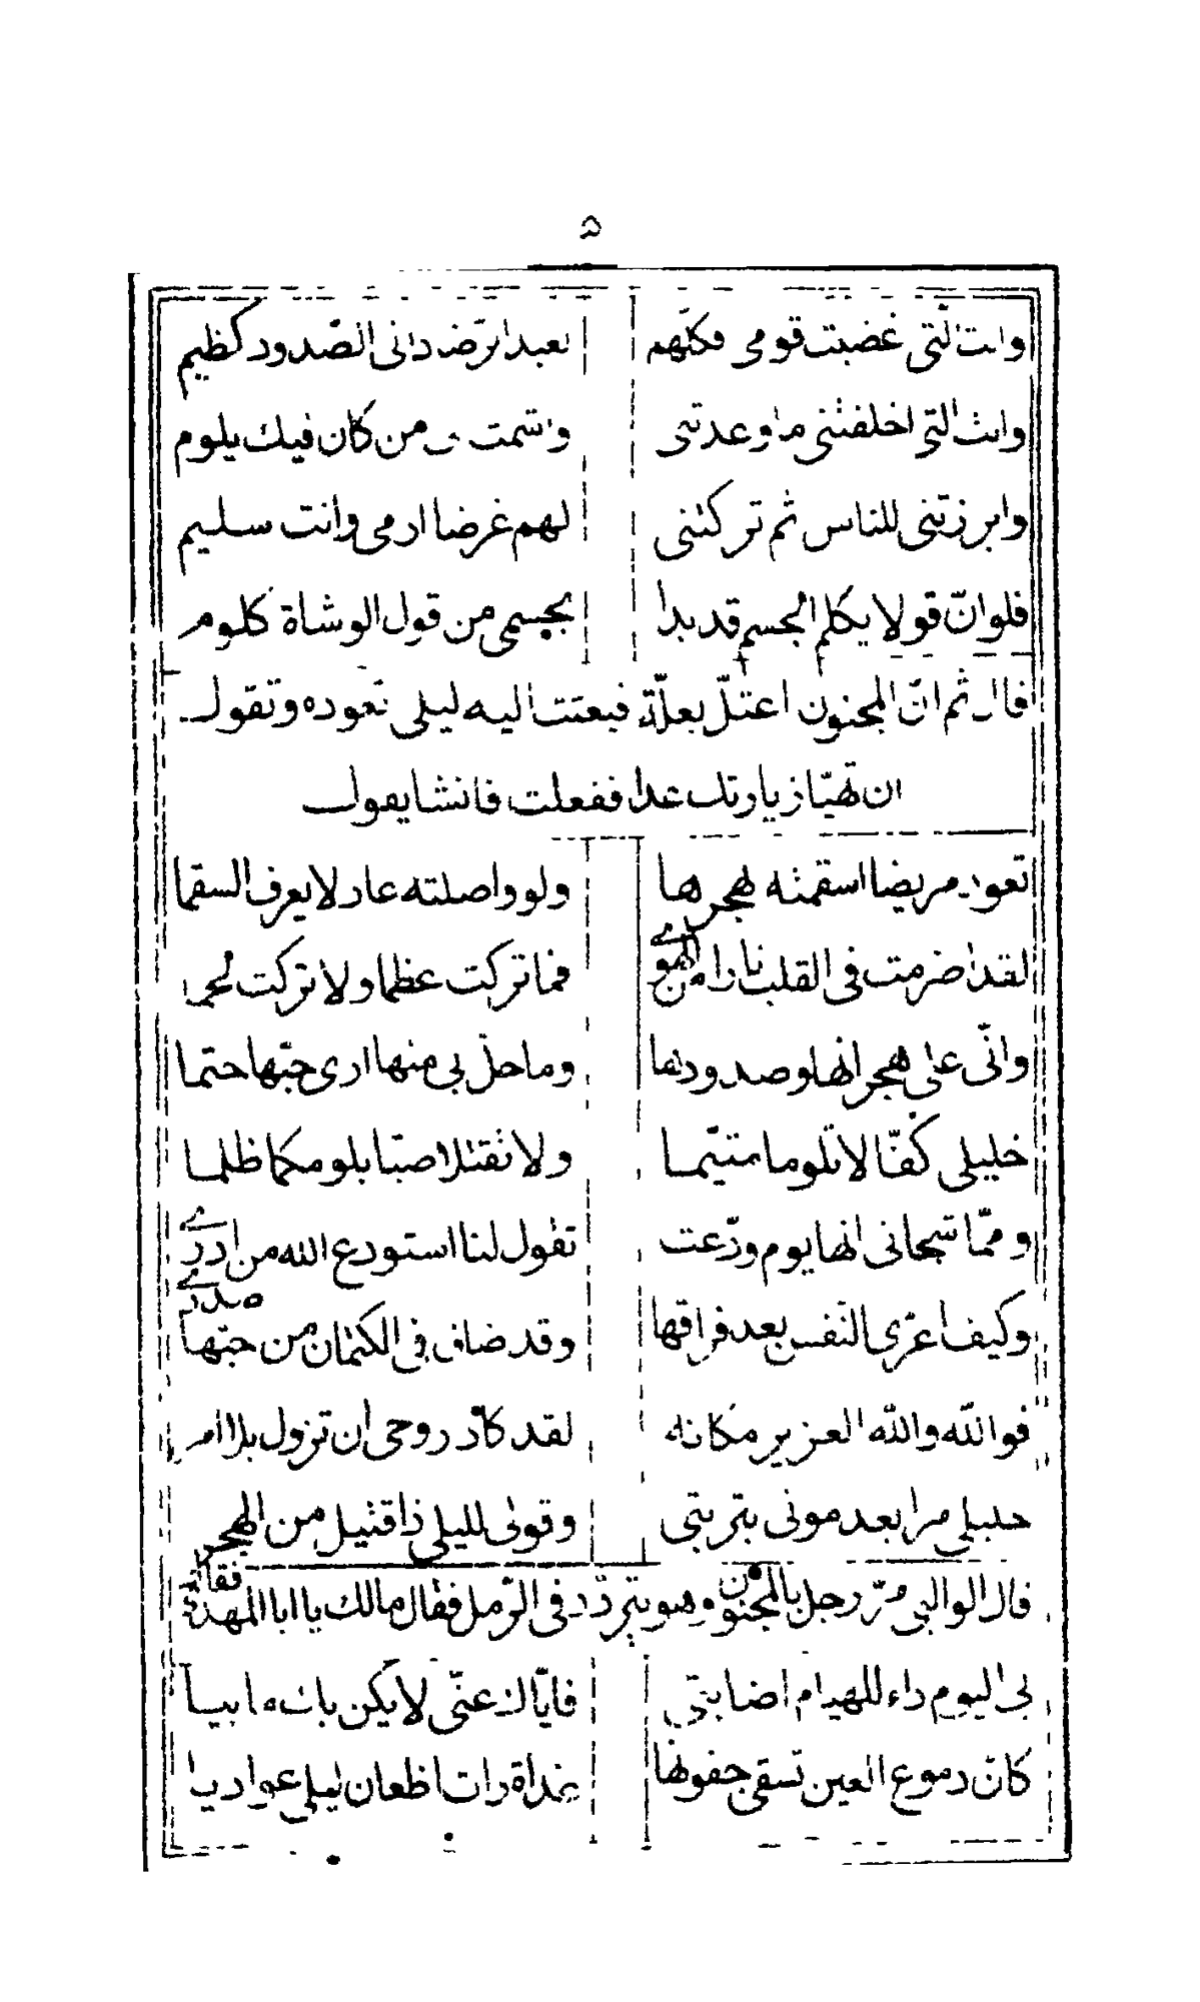 ۵
وانت الّتى غضبت قومى فكلّهم بعيد الرّضا دانى الصّدود كظيم
وانت التى اخلفتنى ما وعدتنى واشمت بى من كان فيك يلوم
وابرزتنى للناس ثم تركتنى لهم غرضا ارمى وانت سليم
فلو انّ قولا يكلم الجسم قد بدا بجسمى من قول الوشاة كلوم
قال ثم انّ المجنون اعتلّ بعلّة فبعثت اليه ليلى تعوده وتقول
ان تهيّا زيارتك غدا ففعلت فانشا يقول
تعود مريضا اسقمته بهجرها ولو واصلته عاد لا يعرف السقما
لقد اضرمت فى القلب نارا من الهوى فما تركت عظما ولا تركت لحما
وانّى على هجرانها وصدودها وما حلّ بى منها ارى حبّها حتما
خليلى كفّا لا تلوما متيّما ولا تقتلا صبّا بلومكما ظلما
وممّا شجانى انها يوم ودّعت تقول لنا استودع الله من ادرى
وكيف اعزى النّفس بعد فراقها وقد ضاق فى الكتمان من حبّها صدرى
فو اللّه واللّه العزيز مكانه لقد كاد روحى ان تزول بلا امر
خليلى مرا بعد موتى بتربتى وقولى لليلى ذا قتيل من الهجر
قال الوالبى مرّ رجل بالمجنون وهو يتمرّد فى الرّمل فقال مالك يا ابا المهدى فقال
بى اليوم داء للهيام اصابنى فايّاك عنّى لا يكن بك ما بيا
كانّ دموع العين تسقى جفونها غداة رات اظعان ليلى غواديا